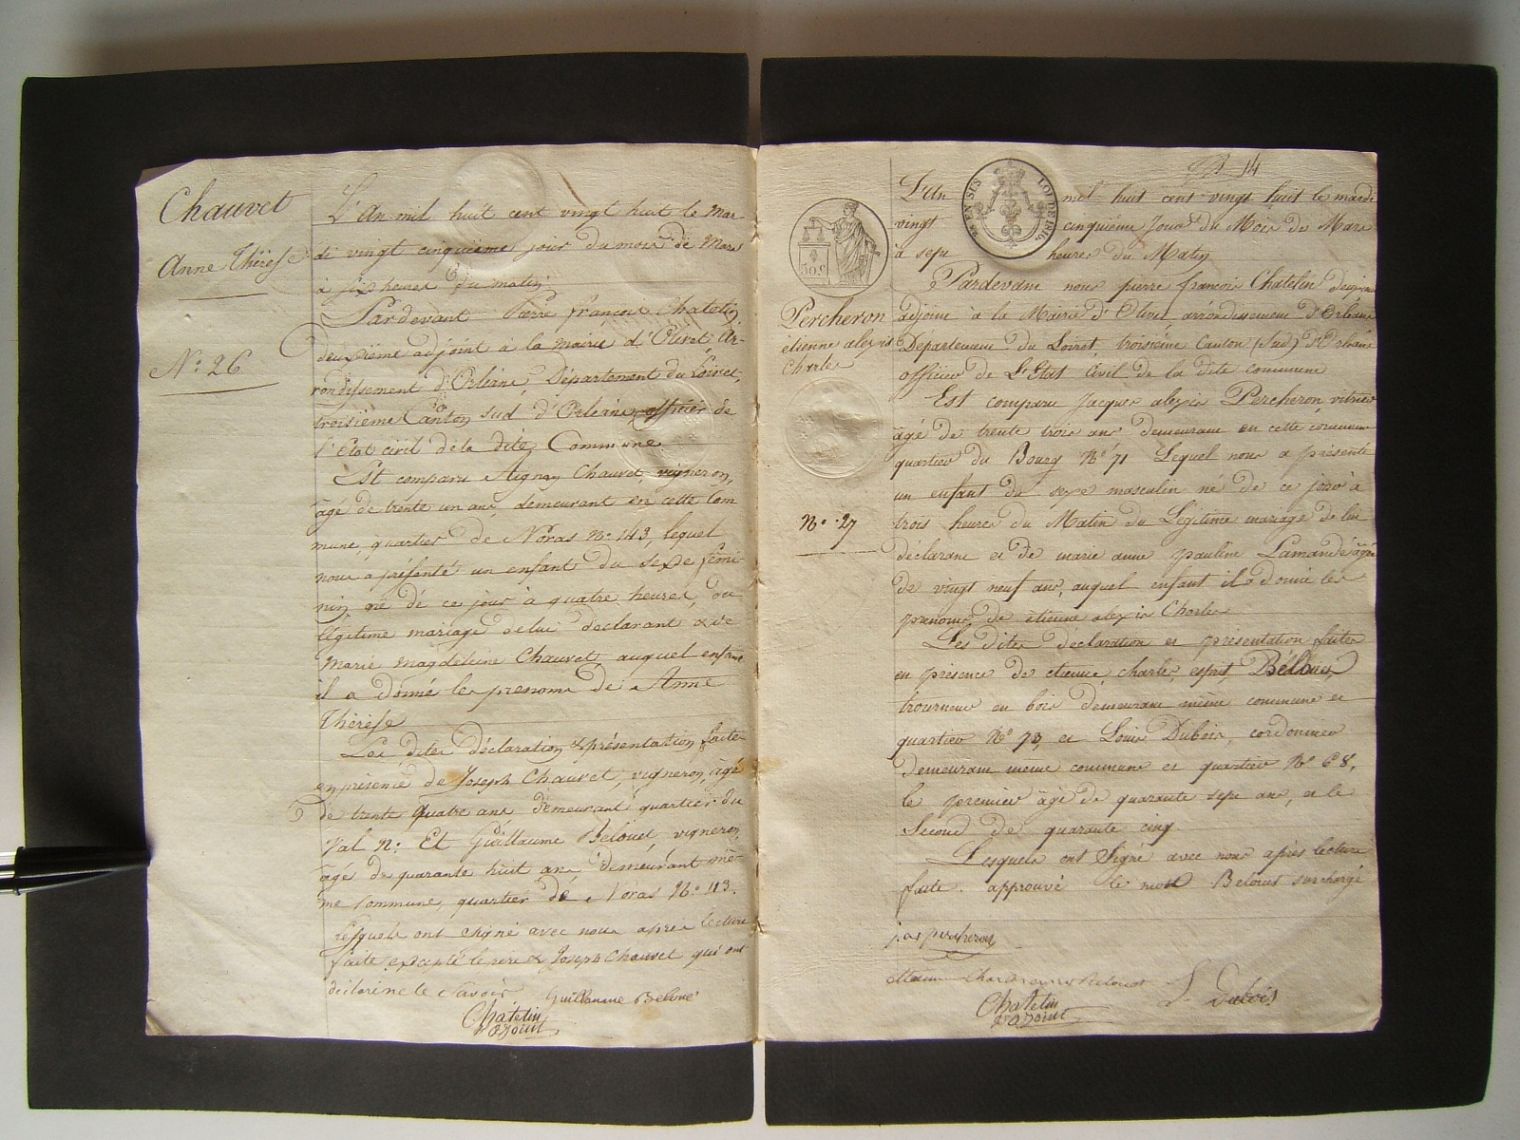 Chauvet
Anne Thérèse
N.° 26
L'An mil huit cent vingt huit le mar-
di vingt cinquieme jour du mois de Mars
à six heures du matin
Pardevant Pierre francois Chatelin
deuxiéme adjoint à la mairie d'Olivet, Ar-
rondissement d'Orléans, Département du Loiret,
troisième Canton sud d'Orléans, officier de
l'Etat civil de la dite Commune
Est comparu Aignan Chauvet, vigneron,
âgé de trente un ans, demeurant en cette Com
mune, quartier de Noras N.° 143, lequel
nous a présenté un enfant du sexe fémi-
nin, né de ce jour à quatre heures, du
légitime mariage de lui déclarant & de
Marie Magdeleine Chauvet, auquel enfant
il a donné les prenoms de Anne
Thérèse
Les dites déclaration & présentation faites
en présence de Joseph Chauvet, vigneron, âgé
de trente quatre ans demeurant quartier du
Val N.° Et Guillaume Belouet, vigneron,
âgé de quarante huit ans demeurant mê-
me Commune, quartier de Noras N.° 113.
Lesquels ont signé avec nous après lecture
faite excepté le pere & Joseph Chauvet qui ont
déclaré ne le savoir
Guillaume Beloue
Chatelin
adjoint
14
50 C
LOI DE 1816
Percheron
étienne alexis
Charles
N.° 27
L'an mil huit cent vingt huit le mardi
vingt cinquième Jour du Mois de Mars
à sept heures du Matin
Pardevant nous pierre francois Chatelin deuxieme
adjoint à la Mairie d'Olivet arrondissement d'Orléans
Département du Loiret, troisième Canton (Sud) d'Orléans
officier de L'Etat Civil de la dite commune
Est comparu Jacques alexis Percheron, vitrier
âgé de trente trois ans demeurant en cette commune
quartier du Bourg N.° 71 Lequel nous a présenté
un enfant du sexe masculin né de ce jour à
trois heures du Matin du Légitime mariage de lui
déclarant et de marie anne pauline Lamandé âgée
de vingt neuf ans, auquel enfant il a donné les
prenoms de étienne alexis Charles
Les dites déclaration et présentation faites
en présence de étienne charles esprit Bélouet,
tourneur en bois demeurant même commune et
quartier N.° 73, et Louis Dubois, cordonnier
demeurant même commune et quartier N.° 68,
le premier âgé de quarante sept ans, et le
Second de quarante cinq
Lesquels ont Signé avec nous après lecture
faite. approuvé le mot Belouet surchargé
percheron
L Dubois
Chatelin
adjoint